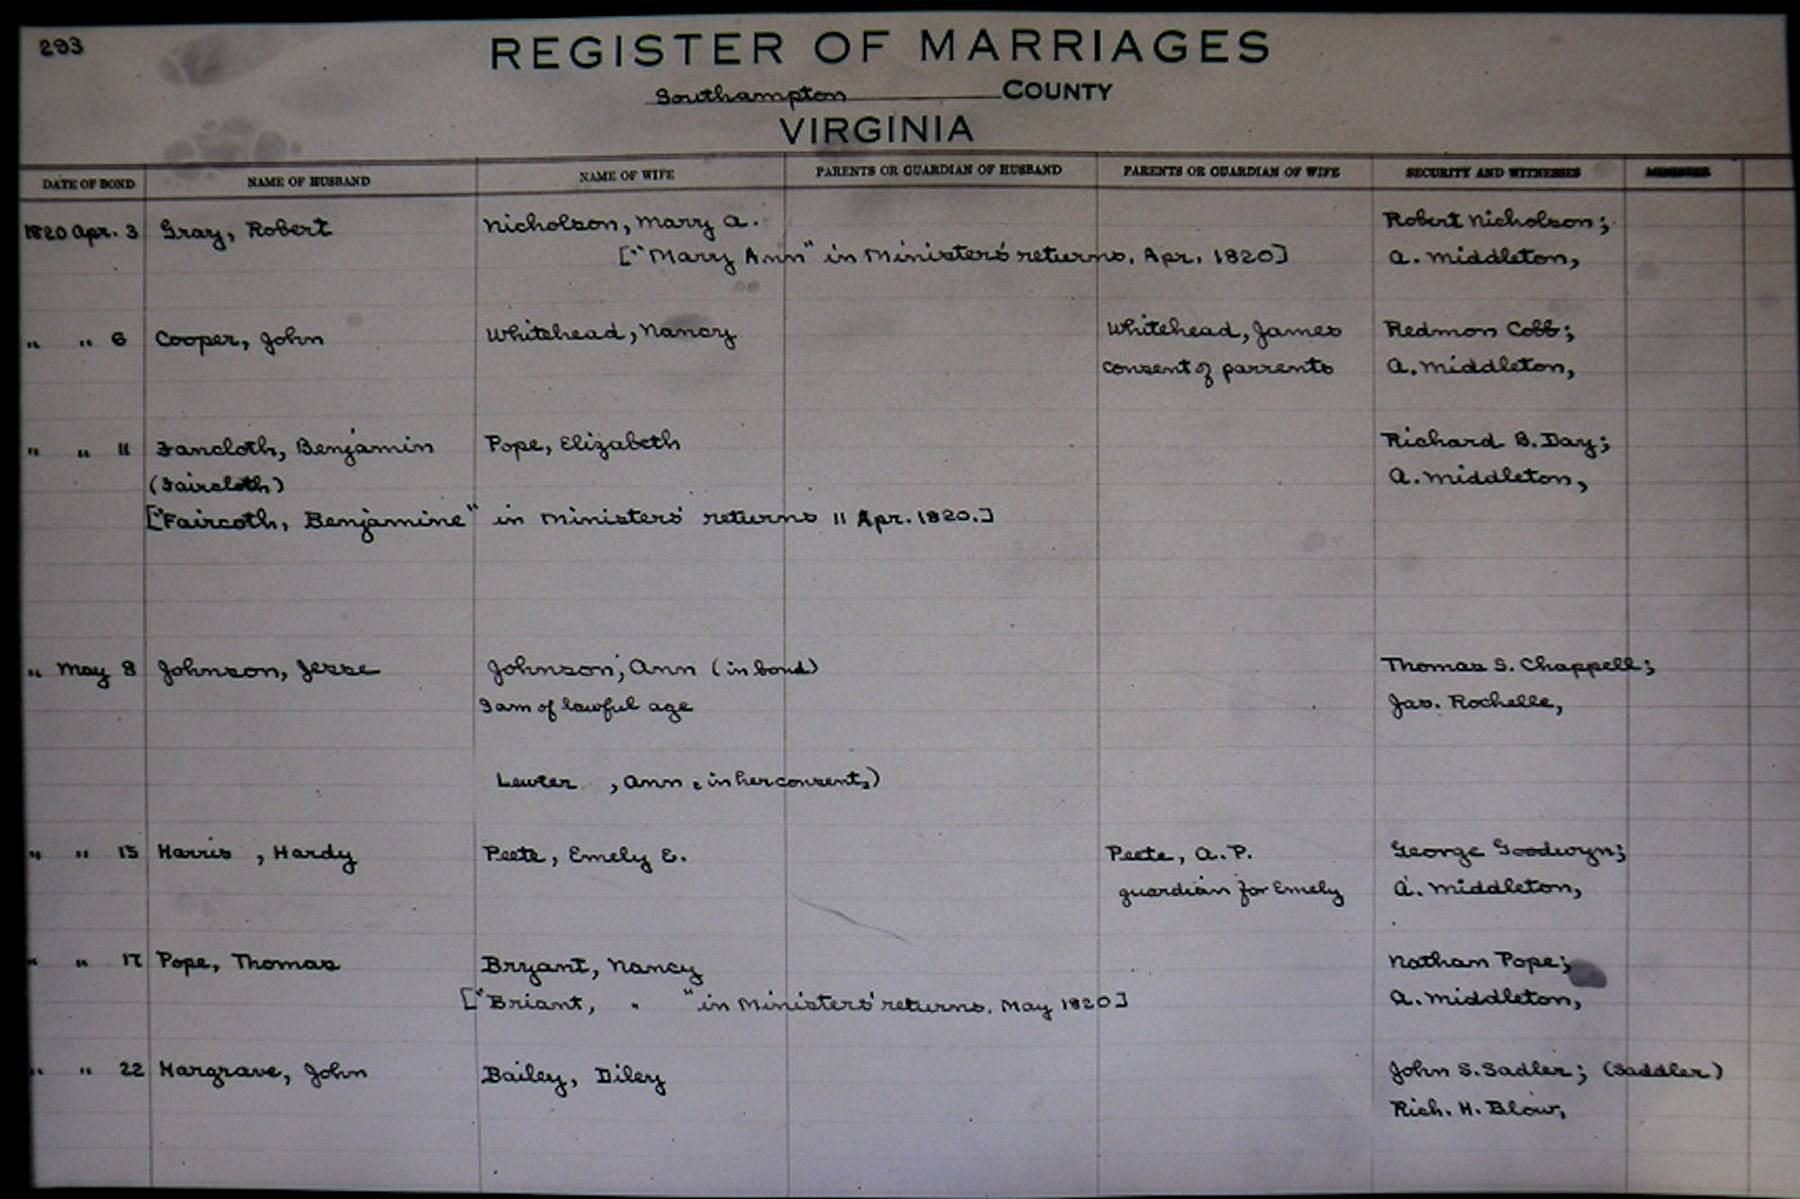 293
REGISTER OF MARRIAGES
Southampton COUNTY
VIRGINIA
DATE OF BOND NAME OF HUSBAND NAME OF WIFE PARENTS OR GUARDIAN OF HUSBAND PARENTS OR GUARDIAN OF WIFE SECURITY AND WITNESSES MINISTER
1820 Apr. 3 Gray, Robert Nicholson, Mary A. Robert Nicholson;
["Mary Ann" in Ministers' returns, Apr, 1820] A. Middleton,
" " 6 Cooper, John Whitehead, Nancy Whitehead, James Redmon Cobb;
consent of parrents A. Middleton,
" " 11 Fancloth, Benjamin Pope, Elizabeth Richard B. Day;
(Faircloth) A. Middleton,
["Faircoth, Benjamine" in Ministers' returns 11 Apr. 1820.]
" May 8 Johnson, Jesse Johnson, Ann (in bond) Thomas S. Chappell;
I am of lawful age Jas. Rochelle,
Lawter , Ann , in her consent,)
" " 15 Harris , Hardy Peete, Emely E. Peete, A. P. George Goodwyn;
guardian for Emely A. Middleton,
" " 17 Pope, Thomas Bryant, Nancy Nathan Pope;
["Briant, " " in Ministers' returns, May 1820] A. Middleton,
" " 22 Hargrave, John Bailey, Diley John S. Sadler; (Saddler)
Rich. H. Blow,